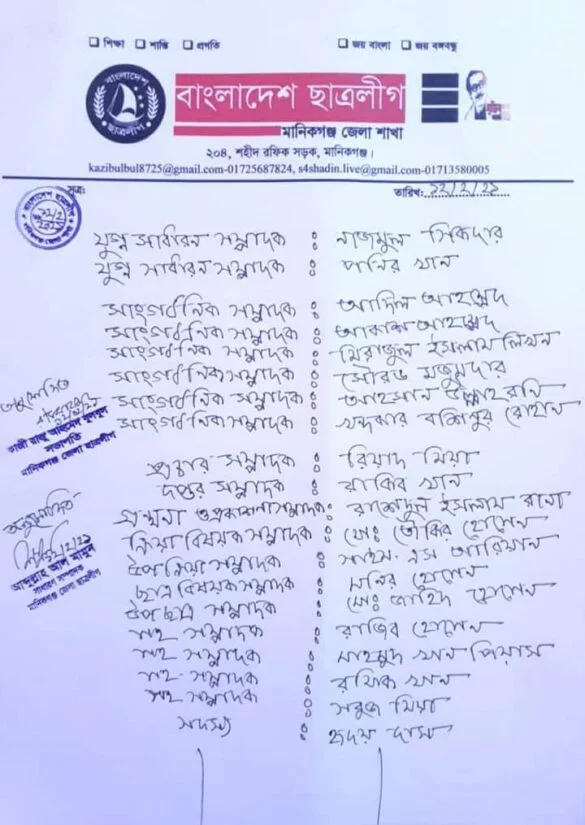 শিক্ষা শান্তি প্রগতি
জয় বাংলা জয় বঙ্গবন্ধু
বাংলাদেশ ছাত্রলীগ
বাংলাদেশ ছাত্রলীগ
মানিকগঞ্জ জেলা শাখা
২০৪, শহীদ রফিক সড়ক, মানিকগঞ্জ।
kazibulbul8725@gmail.com-01725687824, s4shadin.live@gmail.com-01713580005
সূত্রঃ
তারিখঃ ১২/২/২১
যুগ্ম সাধারন সম্পাদক : নাজমুল সিকদার
যুগ্ম সাধারন সম্পাদক : পানির খান
সাংগঠনিক সম্পাদক : আদিল আহম্মেদ
সাংগঠনিক সম্পাদক : আকাশ আহম্মেদ
সাংগঠনিক সম্পাদক : মিরাজুল ইসলাম লিখন
সাংগঠনিক সম্পাদক : সৌরভ মজুমদার
সাংগঠনিক সম্পাদক : আহসান উল্লাহ রনি
সাংগঠনিক সম্পাদক : খন্দকার বশিপুর রোহান
অনুমোদিত
কাজী রাজু আহমেদ বুলবুল
সভাপতি
মানিকগঞ্জ জেলা ছাত্রলীগ
প্রচার সম্পাদক : রিয়াদ মিয়া
দপ্তর সম্পাদক : রাকিব খান
গ্রন্থনা ও প্রকাশনা সম্পাদক : রাশেদুল ইসলাম রানা
শিক্ষা বিষয়ক সম্পাদক : মোঃ তৌকির হোসেন
উপ শিক্ষা সম্পাদক : এস আরিয়ান
ছাত্র বিষয়ক সম্পাদক : মনির হোসেন
উপ ছাত্র সম্পাদক : মোঃ জাহিদ হোসেন
অনুমোদিত
১২/২/২১
আব্দুল্লাহ আল মামুন
সাধারণ সম্পাদক
মানিকগঞ্জ জেলা ছাত্রলীগ
সহ সম্পাদক : রাজিব হোসেন
সহ সম্পাদক : মাহমুদ খান পিয়াস
সহ সম্পাদক : রফিক খান
সহ সম্পাদক : সবুজ মিয়া
সদস্য : হৃদয় দাস